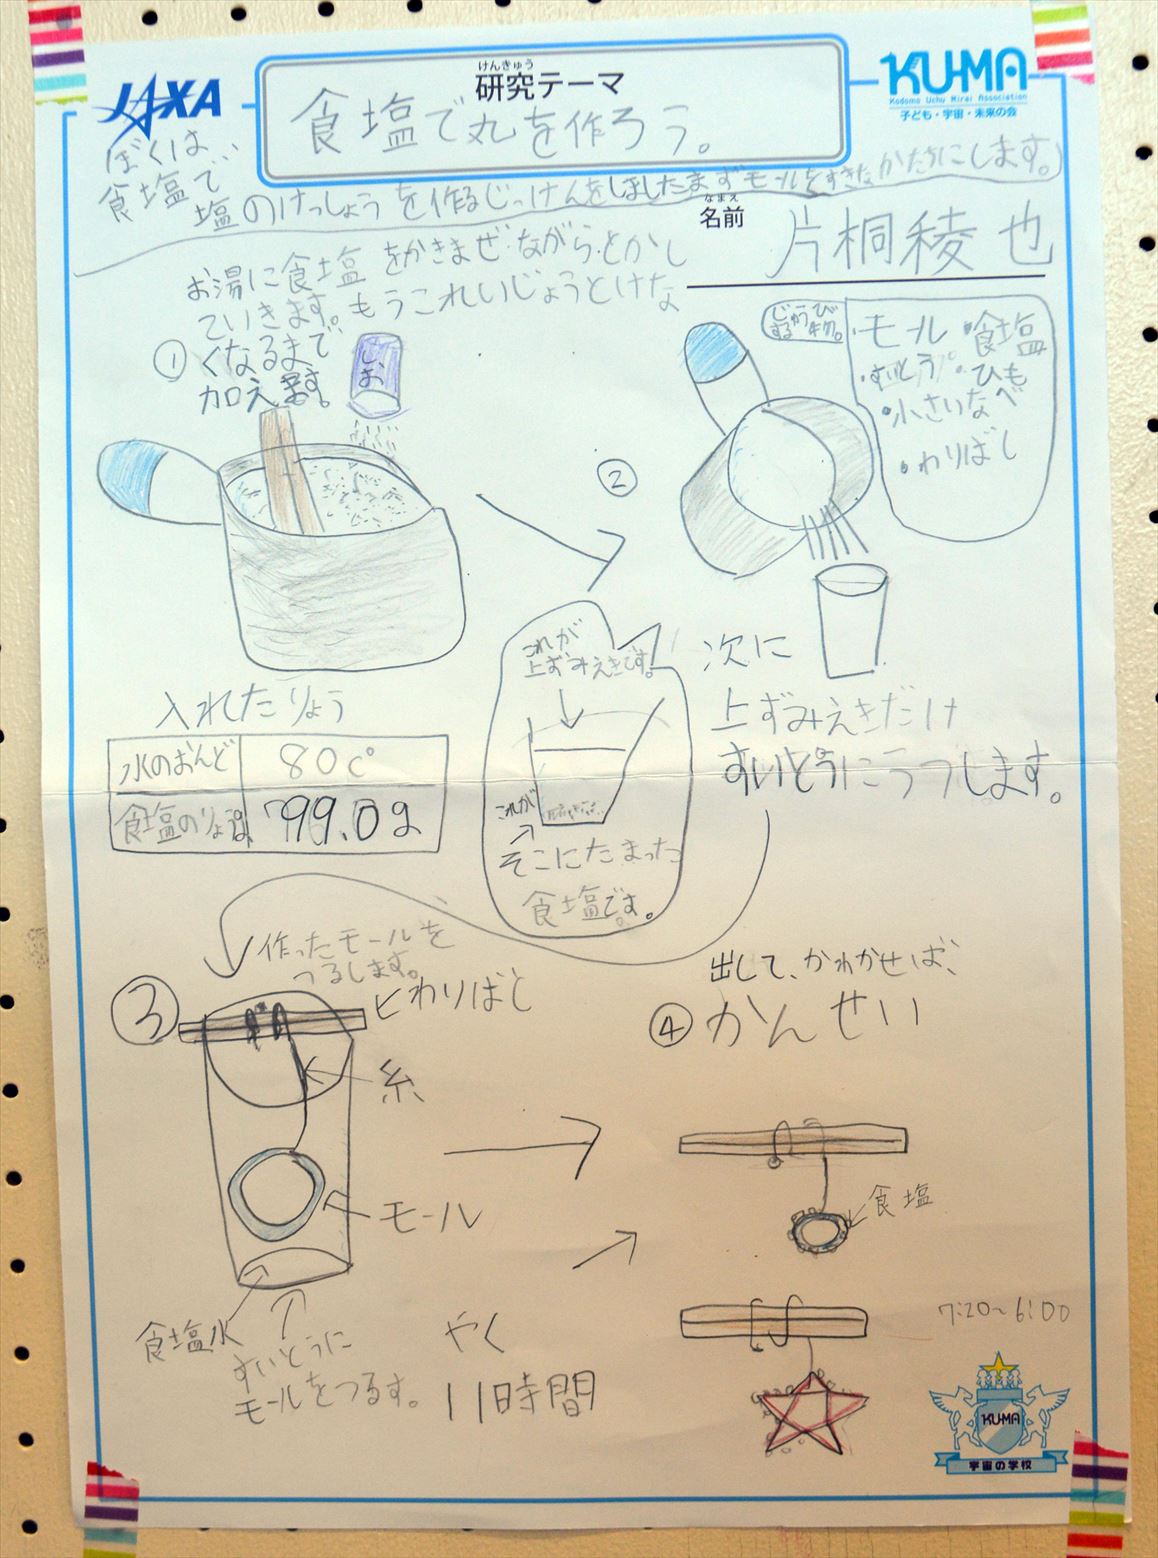 JAXA
けんきゅう
研究テーマ
KU-MA
Kodomo Uchu Mirai Association
子ども・宇宙・未来の会
食塩で丸を作ろう。
ぼくは
食塩で…
塩のけっしょうを作るじっけんをしましたまずモールをすきなかたちにします。
なまえ
名前
片桐稜也
お湯に食塩をかきまぜながらとかし
ていきます。もうこれいじょうとけな
①くなるまで
加えます。
しお
②
モール ・食塩
・すいとう ・ひも
・小さいなべ
・わりばし
次に
上ずみえきだけ
すいとうにうつします。
これが
上ずみえきです。
これが
そこにたまった
食塩です。
入れたりょう
水のおんど 80c°
食塩のりょう 799.0g
③
作ったモールを
つるします。
わりばし
糸
モール
食塩水
すいとうに
モールをつるす。
やく
11時間
出して、かわかせば、
④かんせい
食塩
7:20~6:00
KU-MA
宇宙の学校